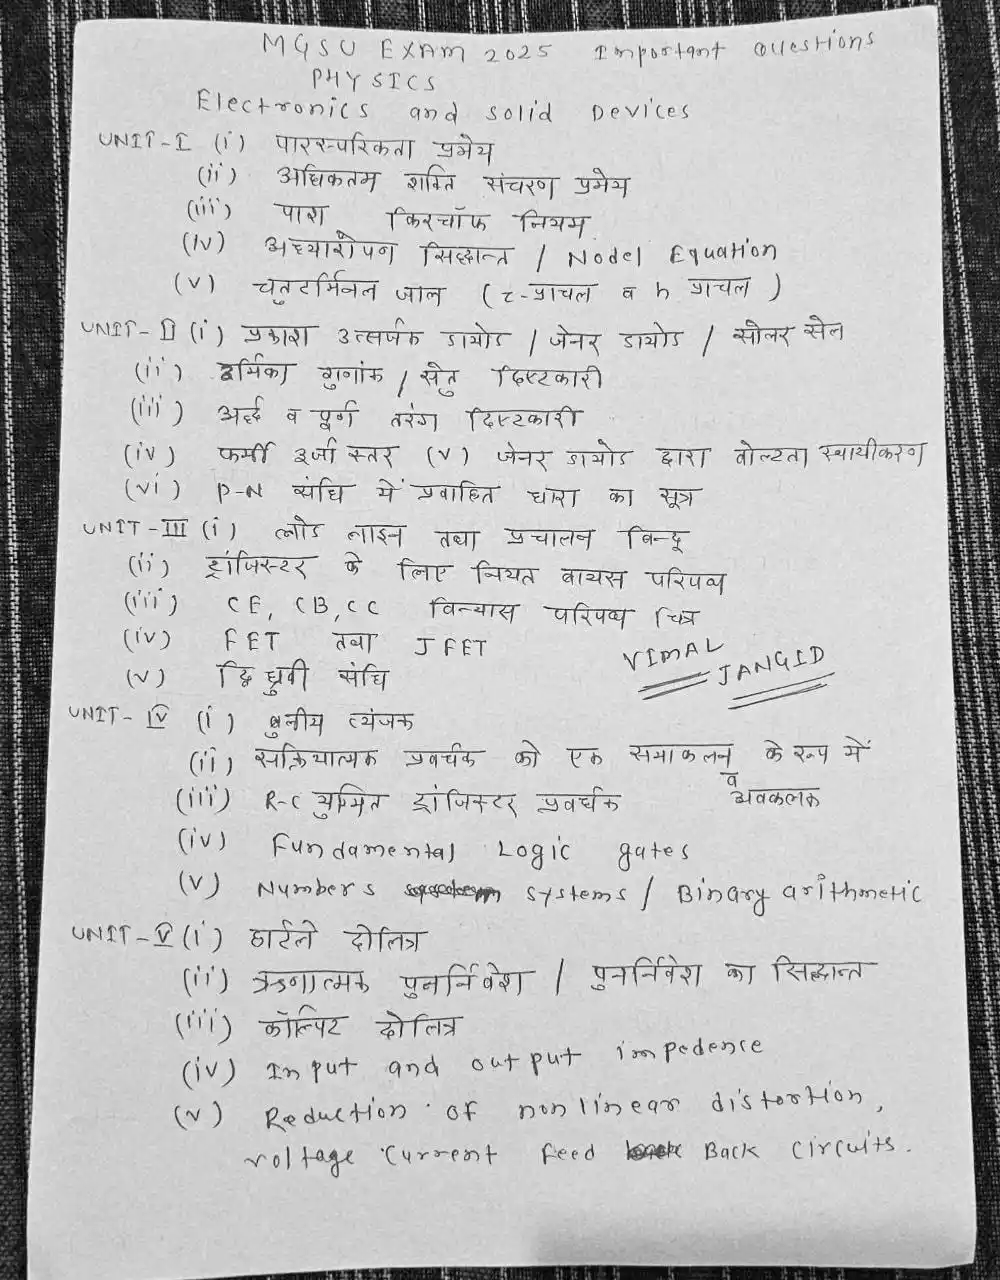 MGSU EXAM 2025 Important Questions
PHYSICS
Electronics and solid Devices
UNIT-I (i) पारस्परिकता प्रमेय
(ii) अधिकतम शक्ति संचरण प्रमेय
(iii) पाश किरचॉफ नियम
(iv) अध्यारोपण सिद्धान्त / Nodel Equation
(v) चतुटर्मिनल जाल (z-प्राचल व h प्राचल)
UNIT-II (i) प्रकाश उत्सर्जक डायोड / जेनर डायोड / सोलर सेल
(ii) उर्मिका गुनांक / सेतु दिष्टकारी
(iii) अर्द्ध व पूर्ण तरंग दिष्टकारी
(iv) फर्मी उर्जा स्तर (v) जेनर डायोड द्वारा वोल्टता स्थायीकरण
(vi) P-N संधि में प्रवाहित धारा का सूत्र
UNIT-III (i) लोड लाइन तथा प्रचालन बिन्दू
(ii) ट्रांजिस्टर के लिए नियत बायस परिपथ
(iii) CE, CB, CC विन्यास परिपथ चित्र
(iv) FET तथा JFET
VIMAL JANGID
(v) द्वि ध्रुवी संधि
UNIT-IV (i) बुनीय व्यंजक
(ii) सक्रियात्मक प्रवर्धक को एक समाकलन व अवकलक के रूप में
(iii) R-C युग्मित ट्रांजिस्टर प्रवर्धक
(iv) Fundamental Logic gates
(v) Numbers systems / Binary arithmetic
UNIT-V (i) हार्टले दोलित्र
(ii) ऋणात्मक पुनर्निवेश / पुनर्निवेश का सिद्धान्त
(iii) कॉल्पिट दोलित्र
(iv) Input and output impedence
(v) Reduction of nonlinear distortion,
voltage current feed Back circuits.